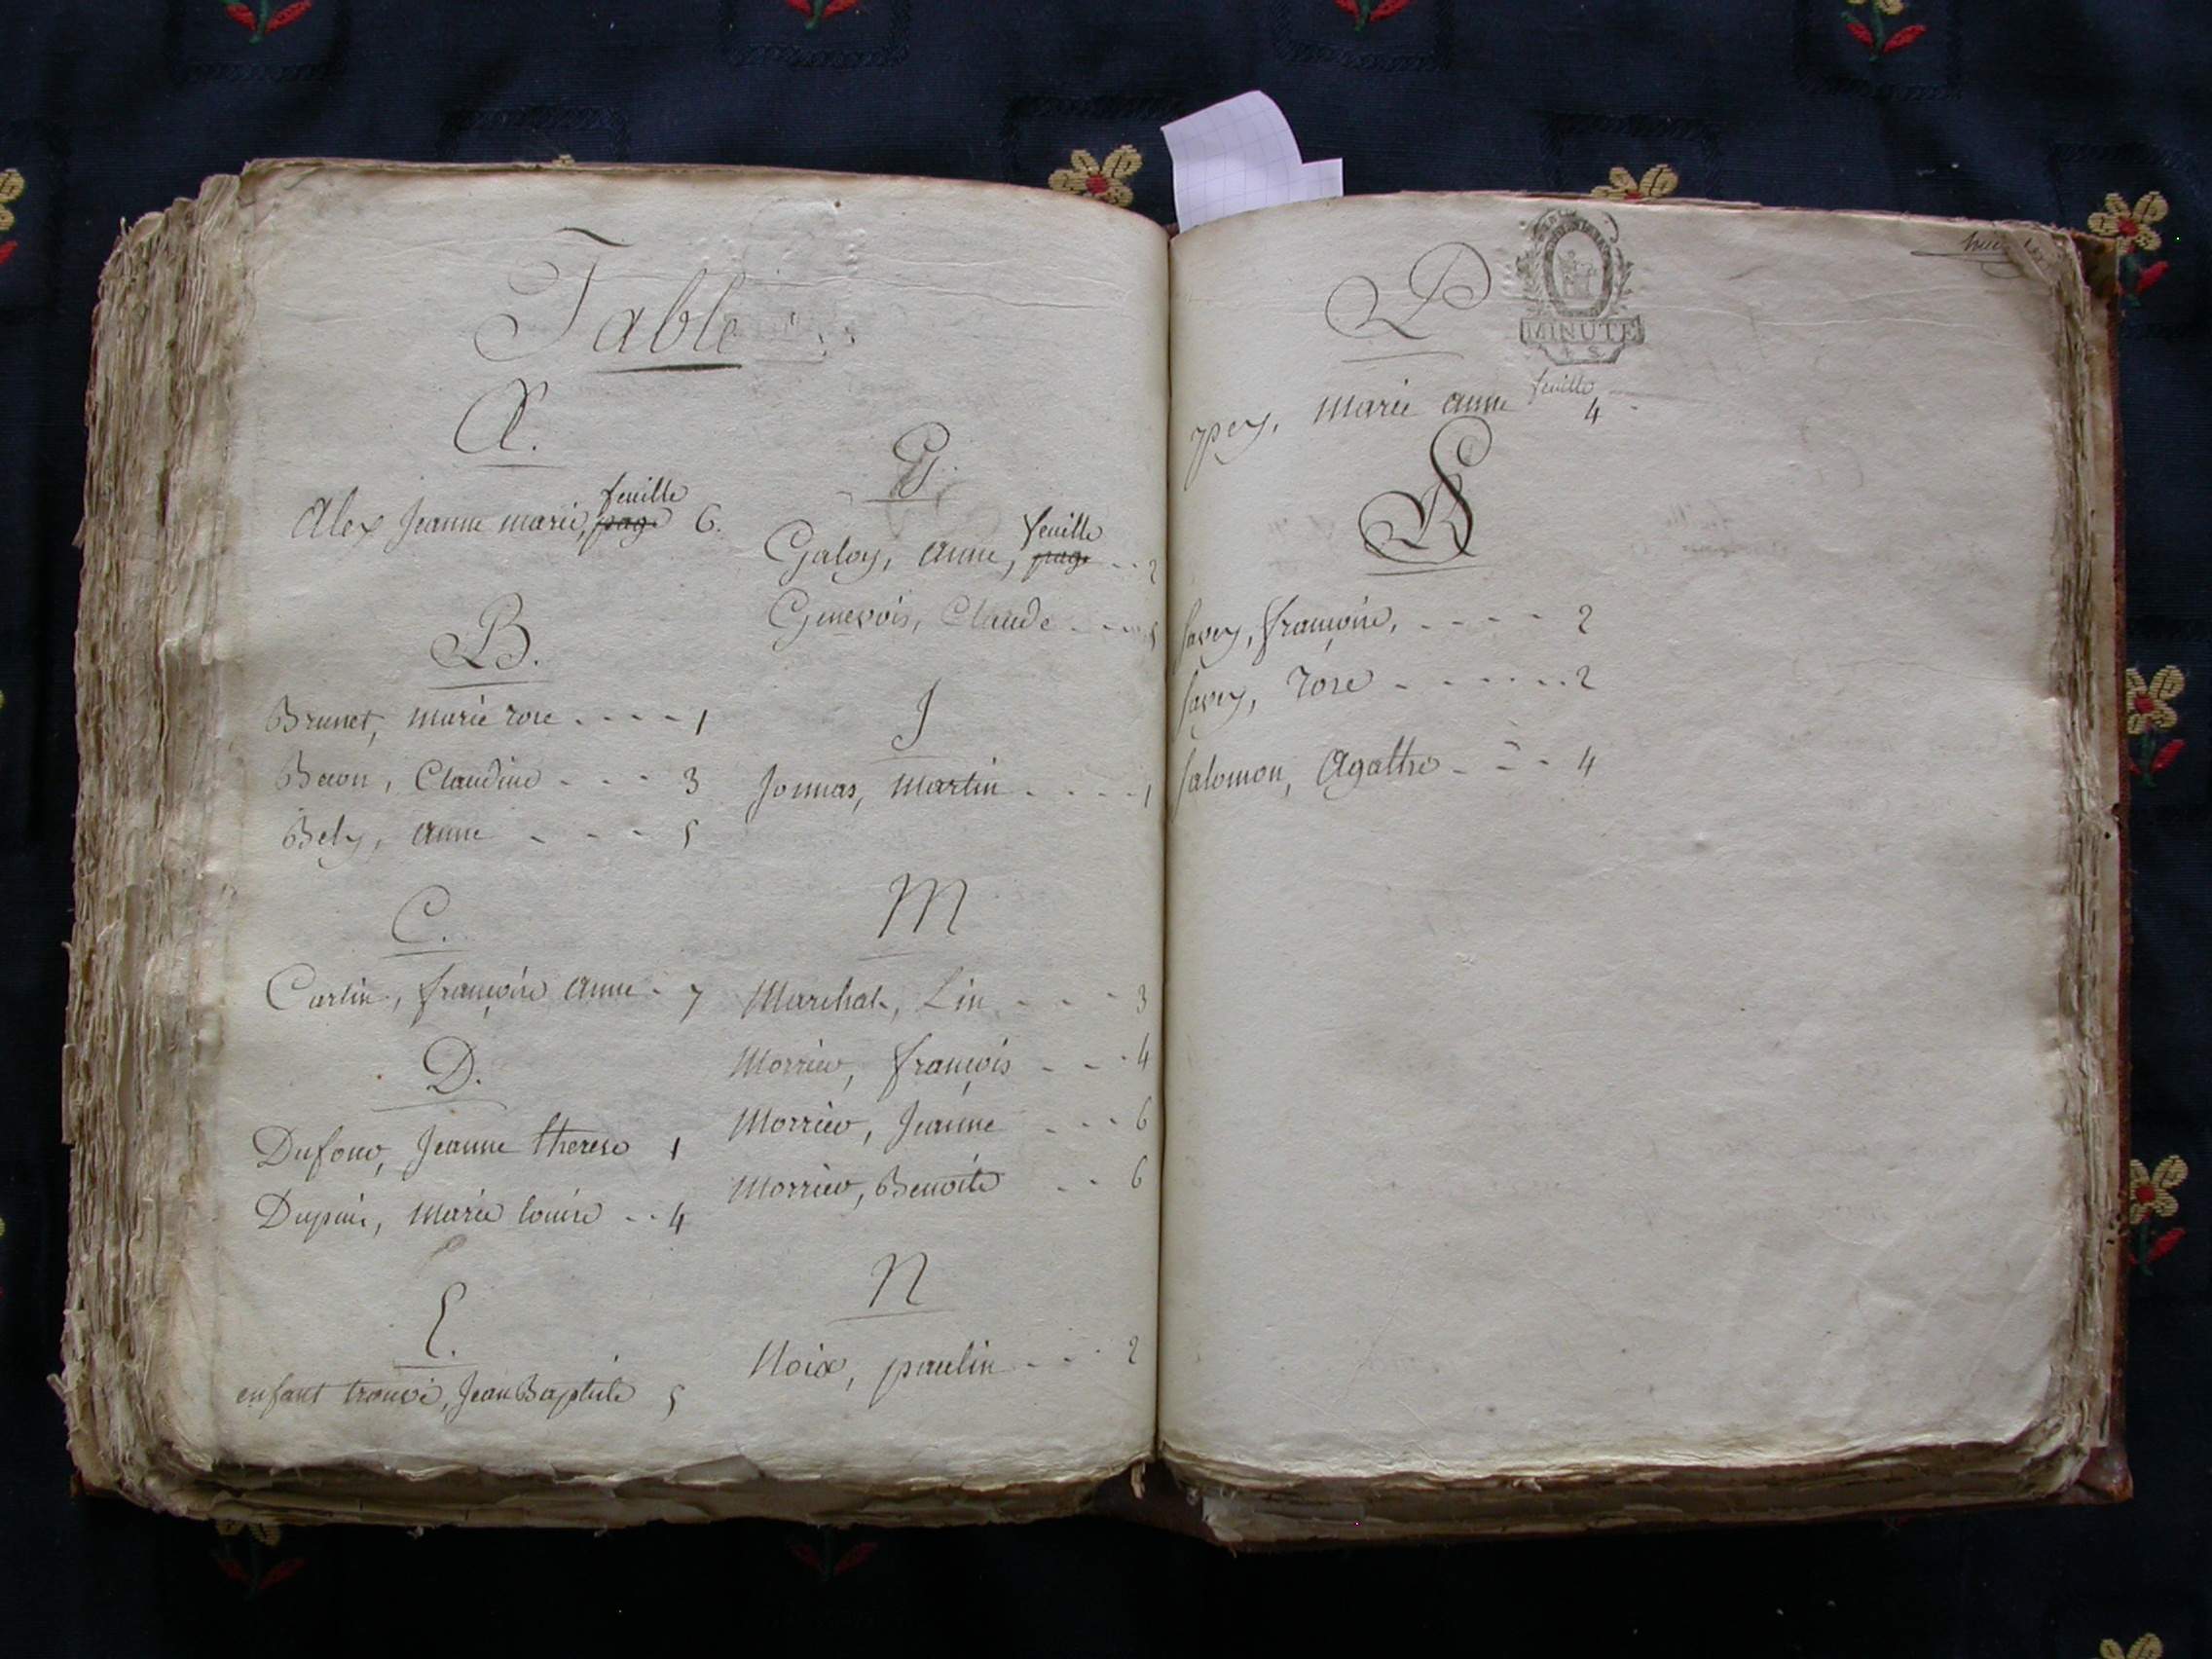 Table
A.
Alex Jeanne marie, feuille page 6.
B.
Brunet, marie rose . . . - 1
Bacon, Claudine - - - 3
Bely, anne - - - 5
C.
Carlin, françoise anne - 7
D.
Dufour, Jeanne therese 1
Dupuis, marie louise - - 4
E.
enfant trouvé, Jean Baptiste 5
G.
Galoy, anne, feuille page . . 2
Genevois, Claude - - - 5
J
Jonnas, Martin . . . . 1
M
Marchal, Lin - - - 3
Morrier, françois - - - 4
Morrier, Jeanne - - - 6
Morrier, Benoite - - 6
N
Noix, paulin - - - 2
P
MINUTE
feuille
pey, marie anne 4
S
Savey, françoise, - - - - 2
Savey, rose - - - - - - 2
Salomon, Agathe - - - 4